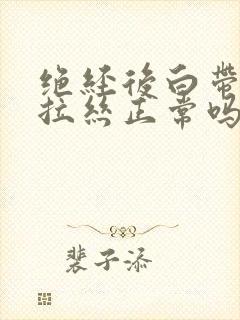 绝经后白带
拉丝正常吗
裴子添